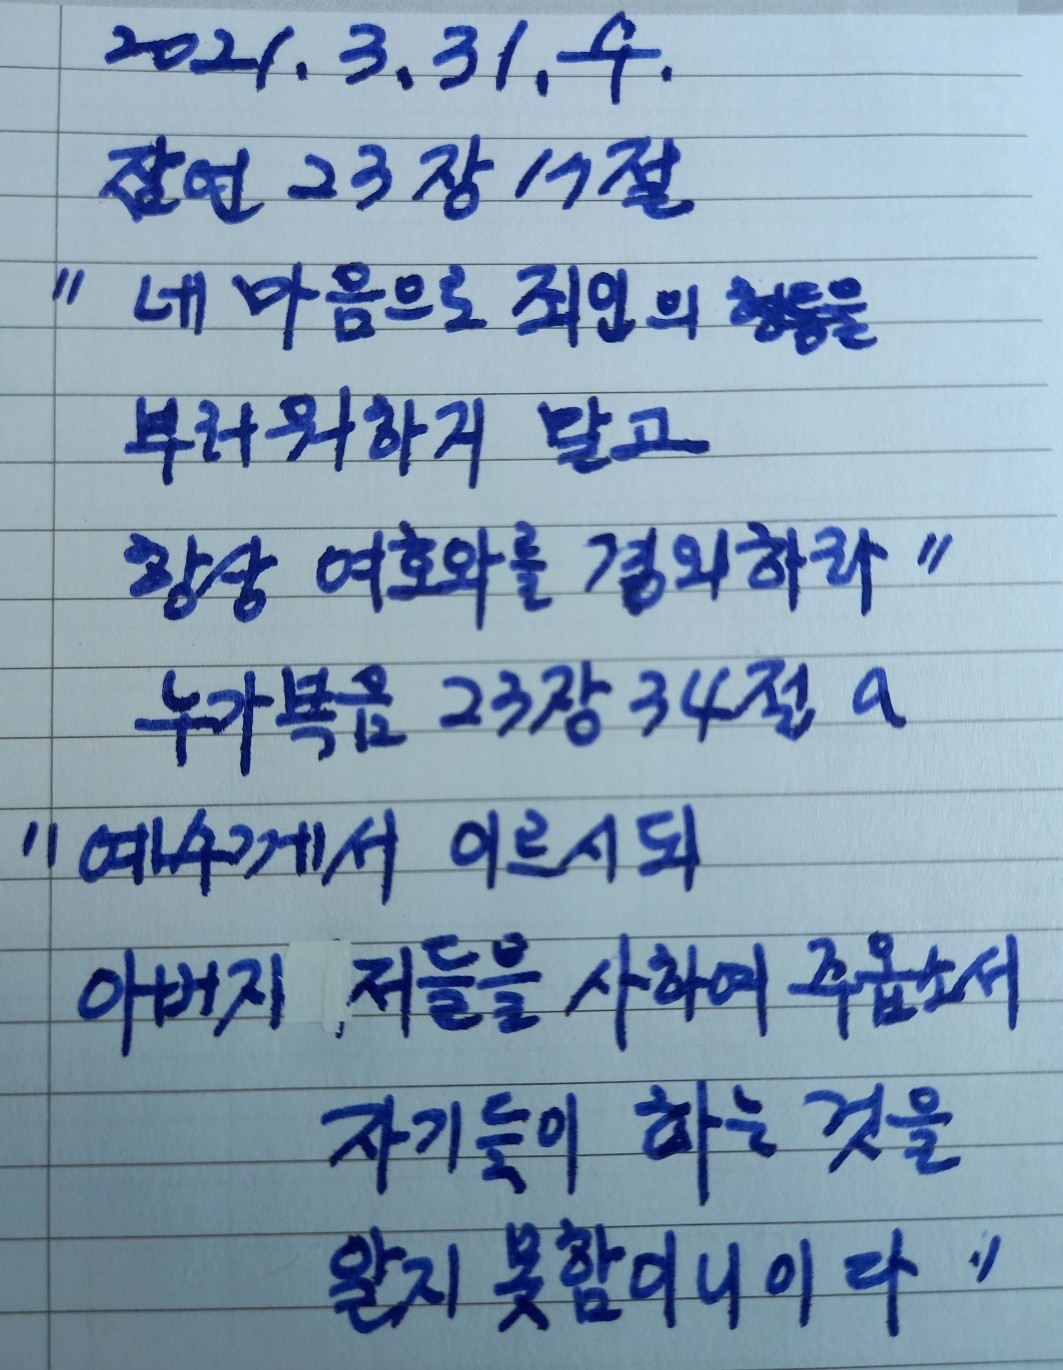 2021. 3. 31. 수.
잠언 23장 17절
" 네 마음으로 죄인의 형통을
부러워하지 말고
항상 여호와를 경외하라 "
누가복음 23장 34절 a
" 예수께서 이르시되
아버지, 저들을 사하여 주옵소서
자기들이 하는 것을
알지 못함이니이다 "